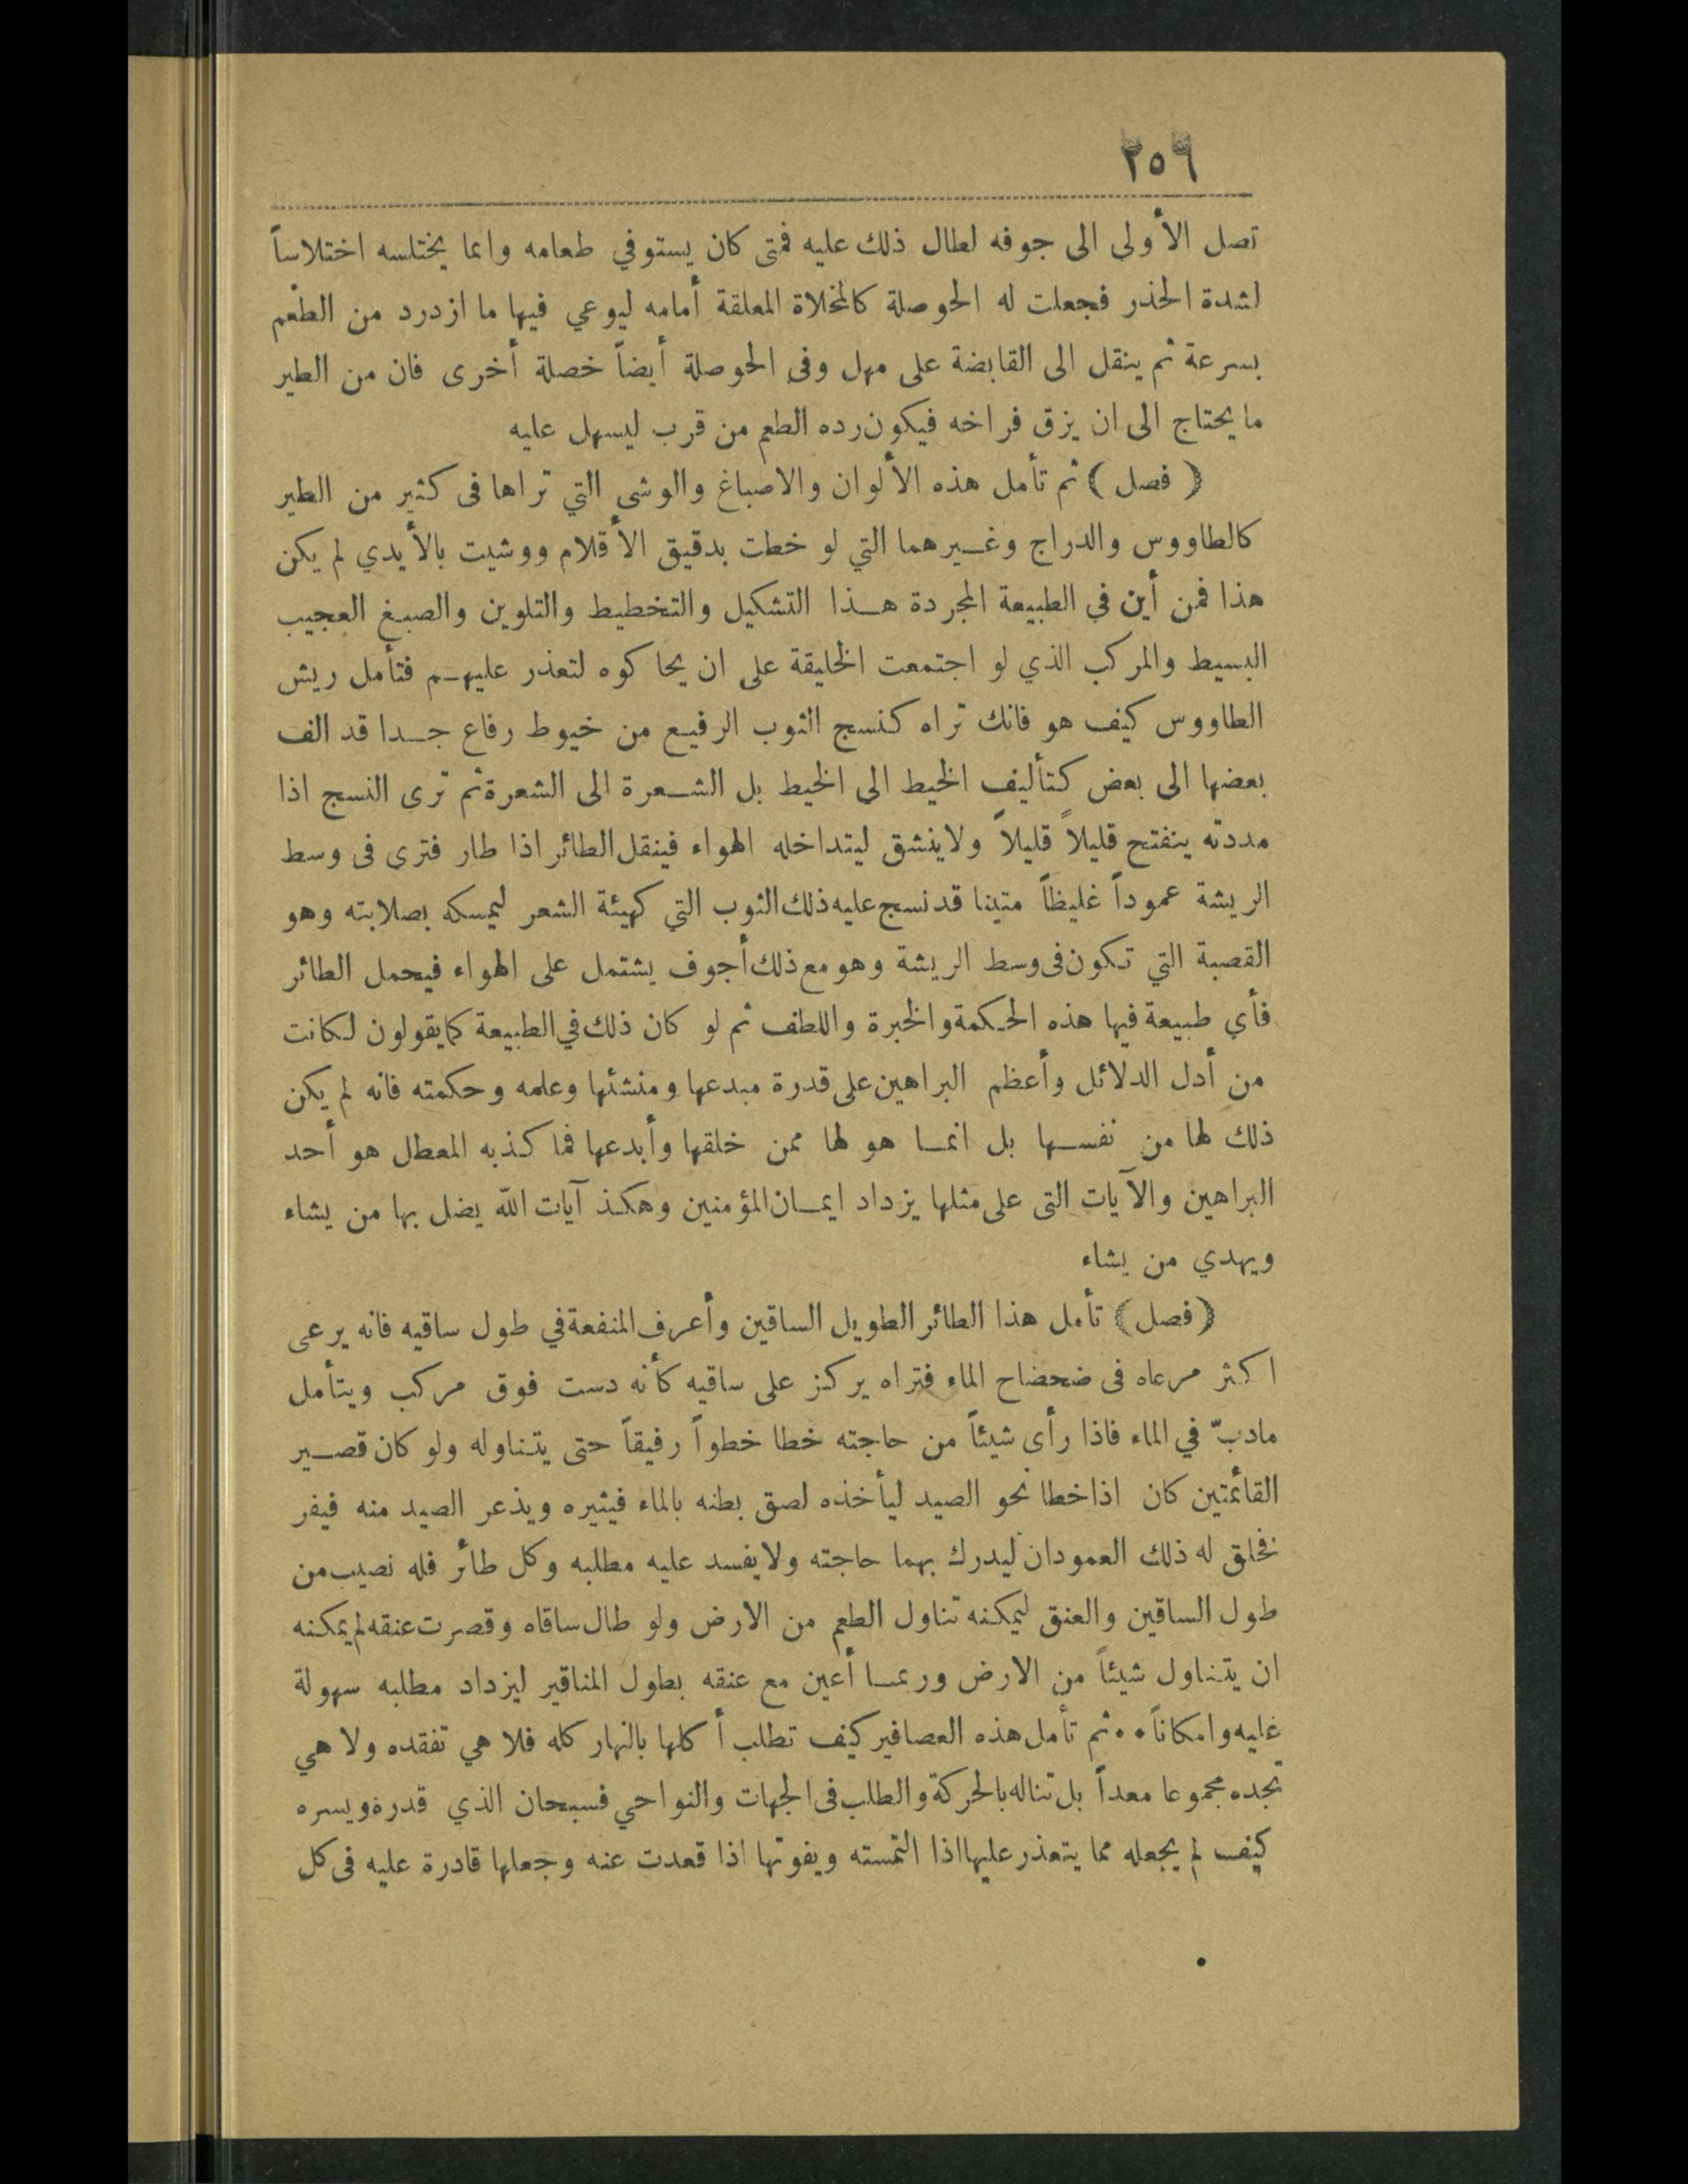 ٢٥٦
تصل الأولى الى جوفه لطال ذلك عليه فمتى كان يستوفي طعامه وانما يختلسه اختلاساً
لشدة الحذر فجعلت له الحوصلة كالمخلاة المعلقة أمامه ليوعي فيها ما ازدرد من الطعم
بسرعة ثم ينقل الى القابضة على مهل وفى الحوصلة أيضاً خصلة أخرى فان من الطير
ما يحتاج الى ان يزق فراخه فيكون رده الطعم من قرب ليسهل عليه
( فصل ) ثم تأمل هذه الألوان والاصباغ والوشى التي تراها فى كثير من الطير
كالطاووس والدراج وغيرهما التي لو خطت بدقيق الأقلام ووشيت بالأيدي لم يكن
هذا فمن أين في الطبيعة المجردة هذا التشكيل والتخطيط والتلوين والصبغ العجيب
البسيط والمركب الذي لو اجتمعت الخليقة على ان يحاكوه لتعذر عليهم فتأمل ريش
الطاووس كيف هو فانك تراه كنسج الثوب الرفيع من خيوط رفاع جدا قد الف
بعضها الى بعض كتأليف الخيط الى الخيط بل الشعرة الى الشعرة ثم ترى النسج اذا
مددته ينفتح قليلاً قليلاً ولا ينشق ليتداخله الهواء فينقل الطائر اذا طار فترى فى وسط
الريشة عموداً غليظاً متينا قد نسج عليه ذلك الثوب التي كهيئة الشعر ليمسكه بصلابته وهو
القصبة التي تكون فى وسط الريشة وهو مع ذلك أجوف يشتمل على الهواء فيحمل الطائر
فأي طبيعة فيها هذه الحكمة والخبرة واللطف ثم لو كان ذلك في الطبيعة كما يقولون لكانت
من أدل الدلائل وأعظم البراهين على قدرة مبدعها ومنشئها وعلمه وحكمته فانه لم يكن
ذلك لها من نفسها بل انما هو لها ممن خلقها وأبدعها فما كذبه المعطل هو أحد
البراهين والآيات التى على مثلها يزداد ايمان المؤمنين وهكذ آيات الله يضل بها من يشاء
ويهدي من يشاء
( فصل ) تأمل هذا الطائر الطويل الساقين وأعرف المنفعة في طول ساقيه فانه يرعى
اكثر مرعاه فى ضحضاح الماء فتراه يركز على ساقيه كأنه دست فوق مركب ويتأمل
مادبّ في الماء فاذا رأى شيئاً من حاجته خطا خطواً رفيقاً حتى يتناوله ولو كان قصير
القائمتين كان اذا خطا نحو الصيد ليأخذه لصق بطنه بالماء فيثيره ويذعر الصيد منه فيفر
فخلق له ذلك العمودان ليدرك بهما حاجته ولا يفسد عليه مطلبه وكل طائر فله نصيب من
طول الساقين والعنق ليمكنه تناول الطعم من الارض ولو طال ساقاه وقصرت عنقه لم يمكنه
ان يتناول شيئاً من الارض وربما أعين مع عنقه بطول المناقير ليزداد مطلبه سهولة
عليه وامكاناً •• ثم تأمل هذه العصافير كيف تطلب أكلها بالنهار كله فلا هي تفقده ولا هي
تجده مجموعا معداً بل تناله بالحركة والطلب فى الجهات والنواحي فسبحان الذي قدره ويسره
كيف لم يجعله مما يتعذر عليها اذا التمسته ويفوتها اذا قعدت عنه وجعلها قادرة عليه فى كل